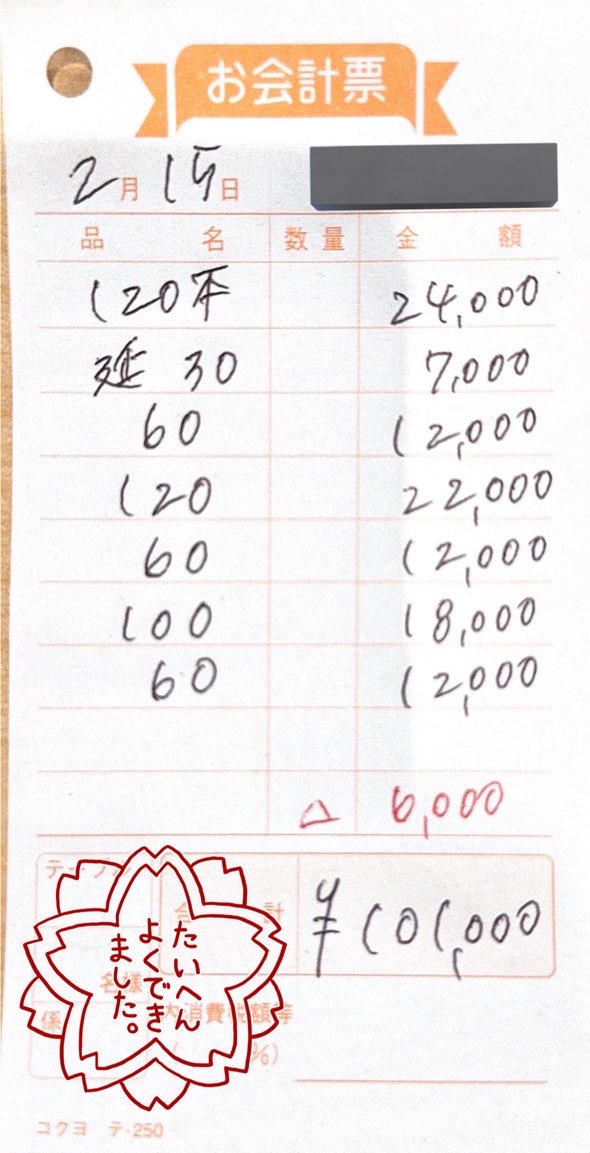 お会計票
2月15日
品名 数量 金額
120本 24,000
延 30 7,000
60 12,000
120 22,000
60 12,000
100 18,000
60 12,000
△ 6,000
合計 ¥101,000
たいへん
よくでき
ました。
名様
係 内消費税額等
%)
コクヨ テ-250